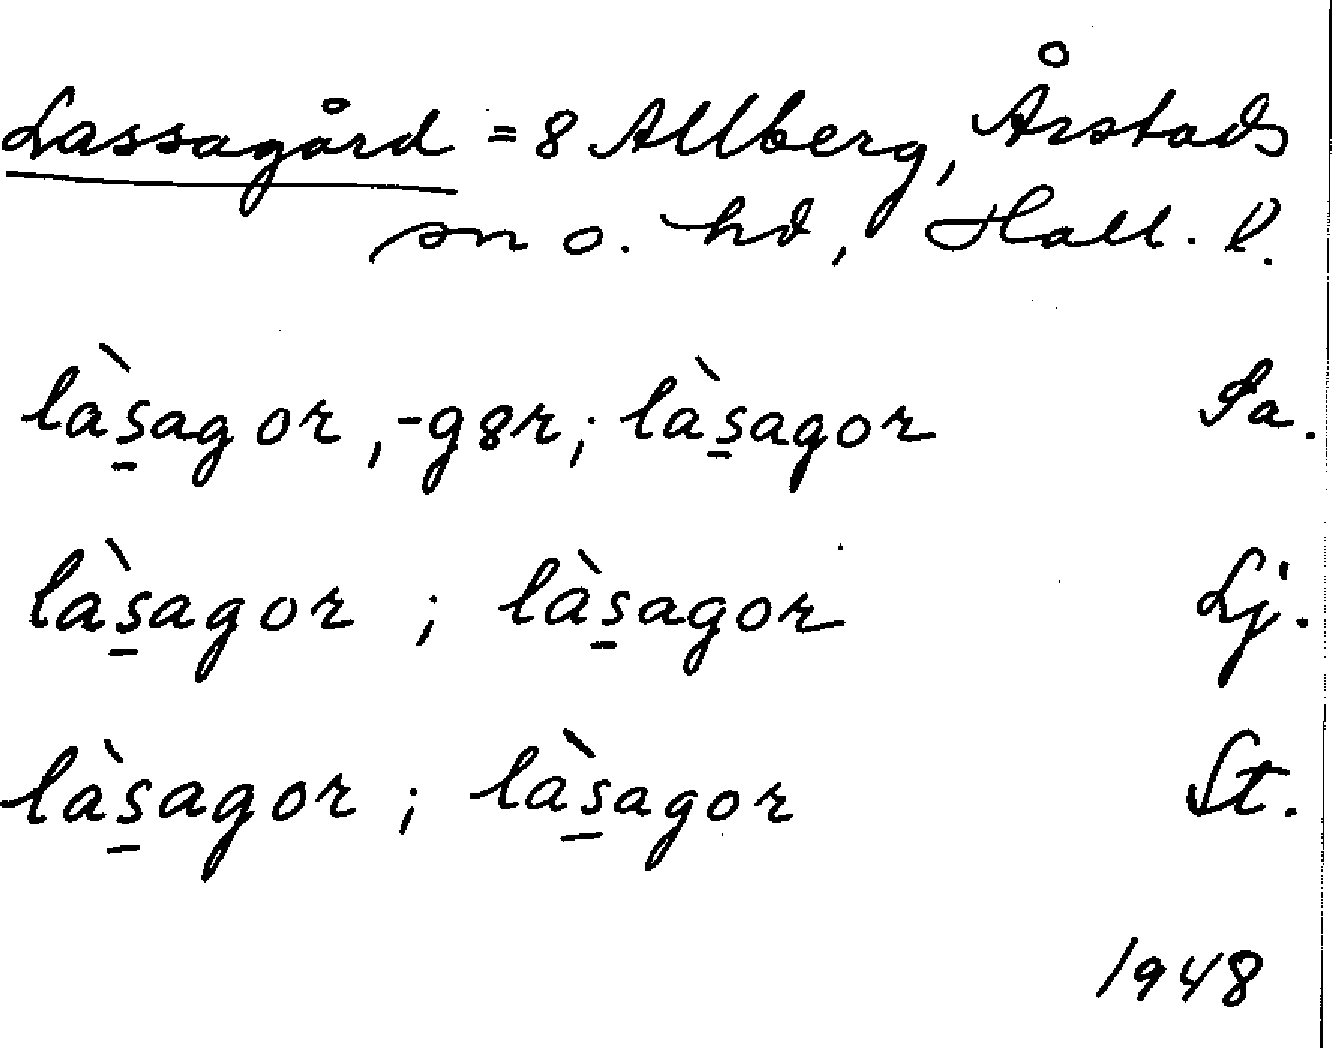 Lassagård = 8 Allberg, Årstads
sn o. hd, Hall. l.
làs̱agor, -g8r; làs̱agor Sa.
làs̱agor ; làs̱agor Lj.
làs̱agor ; làs̱agor St.
1948